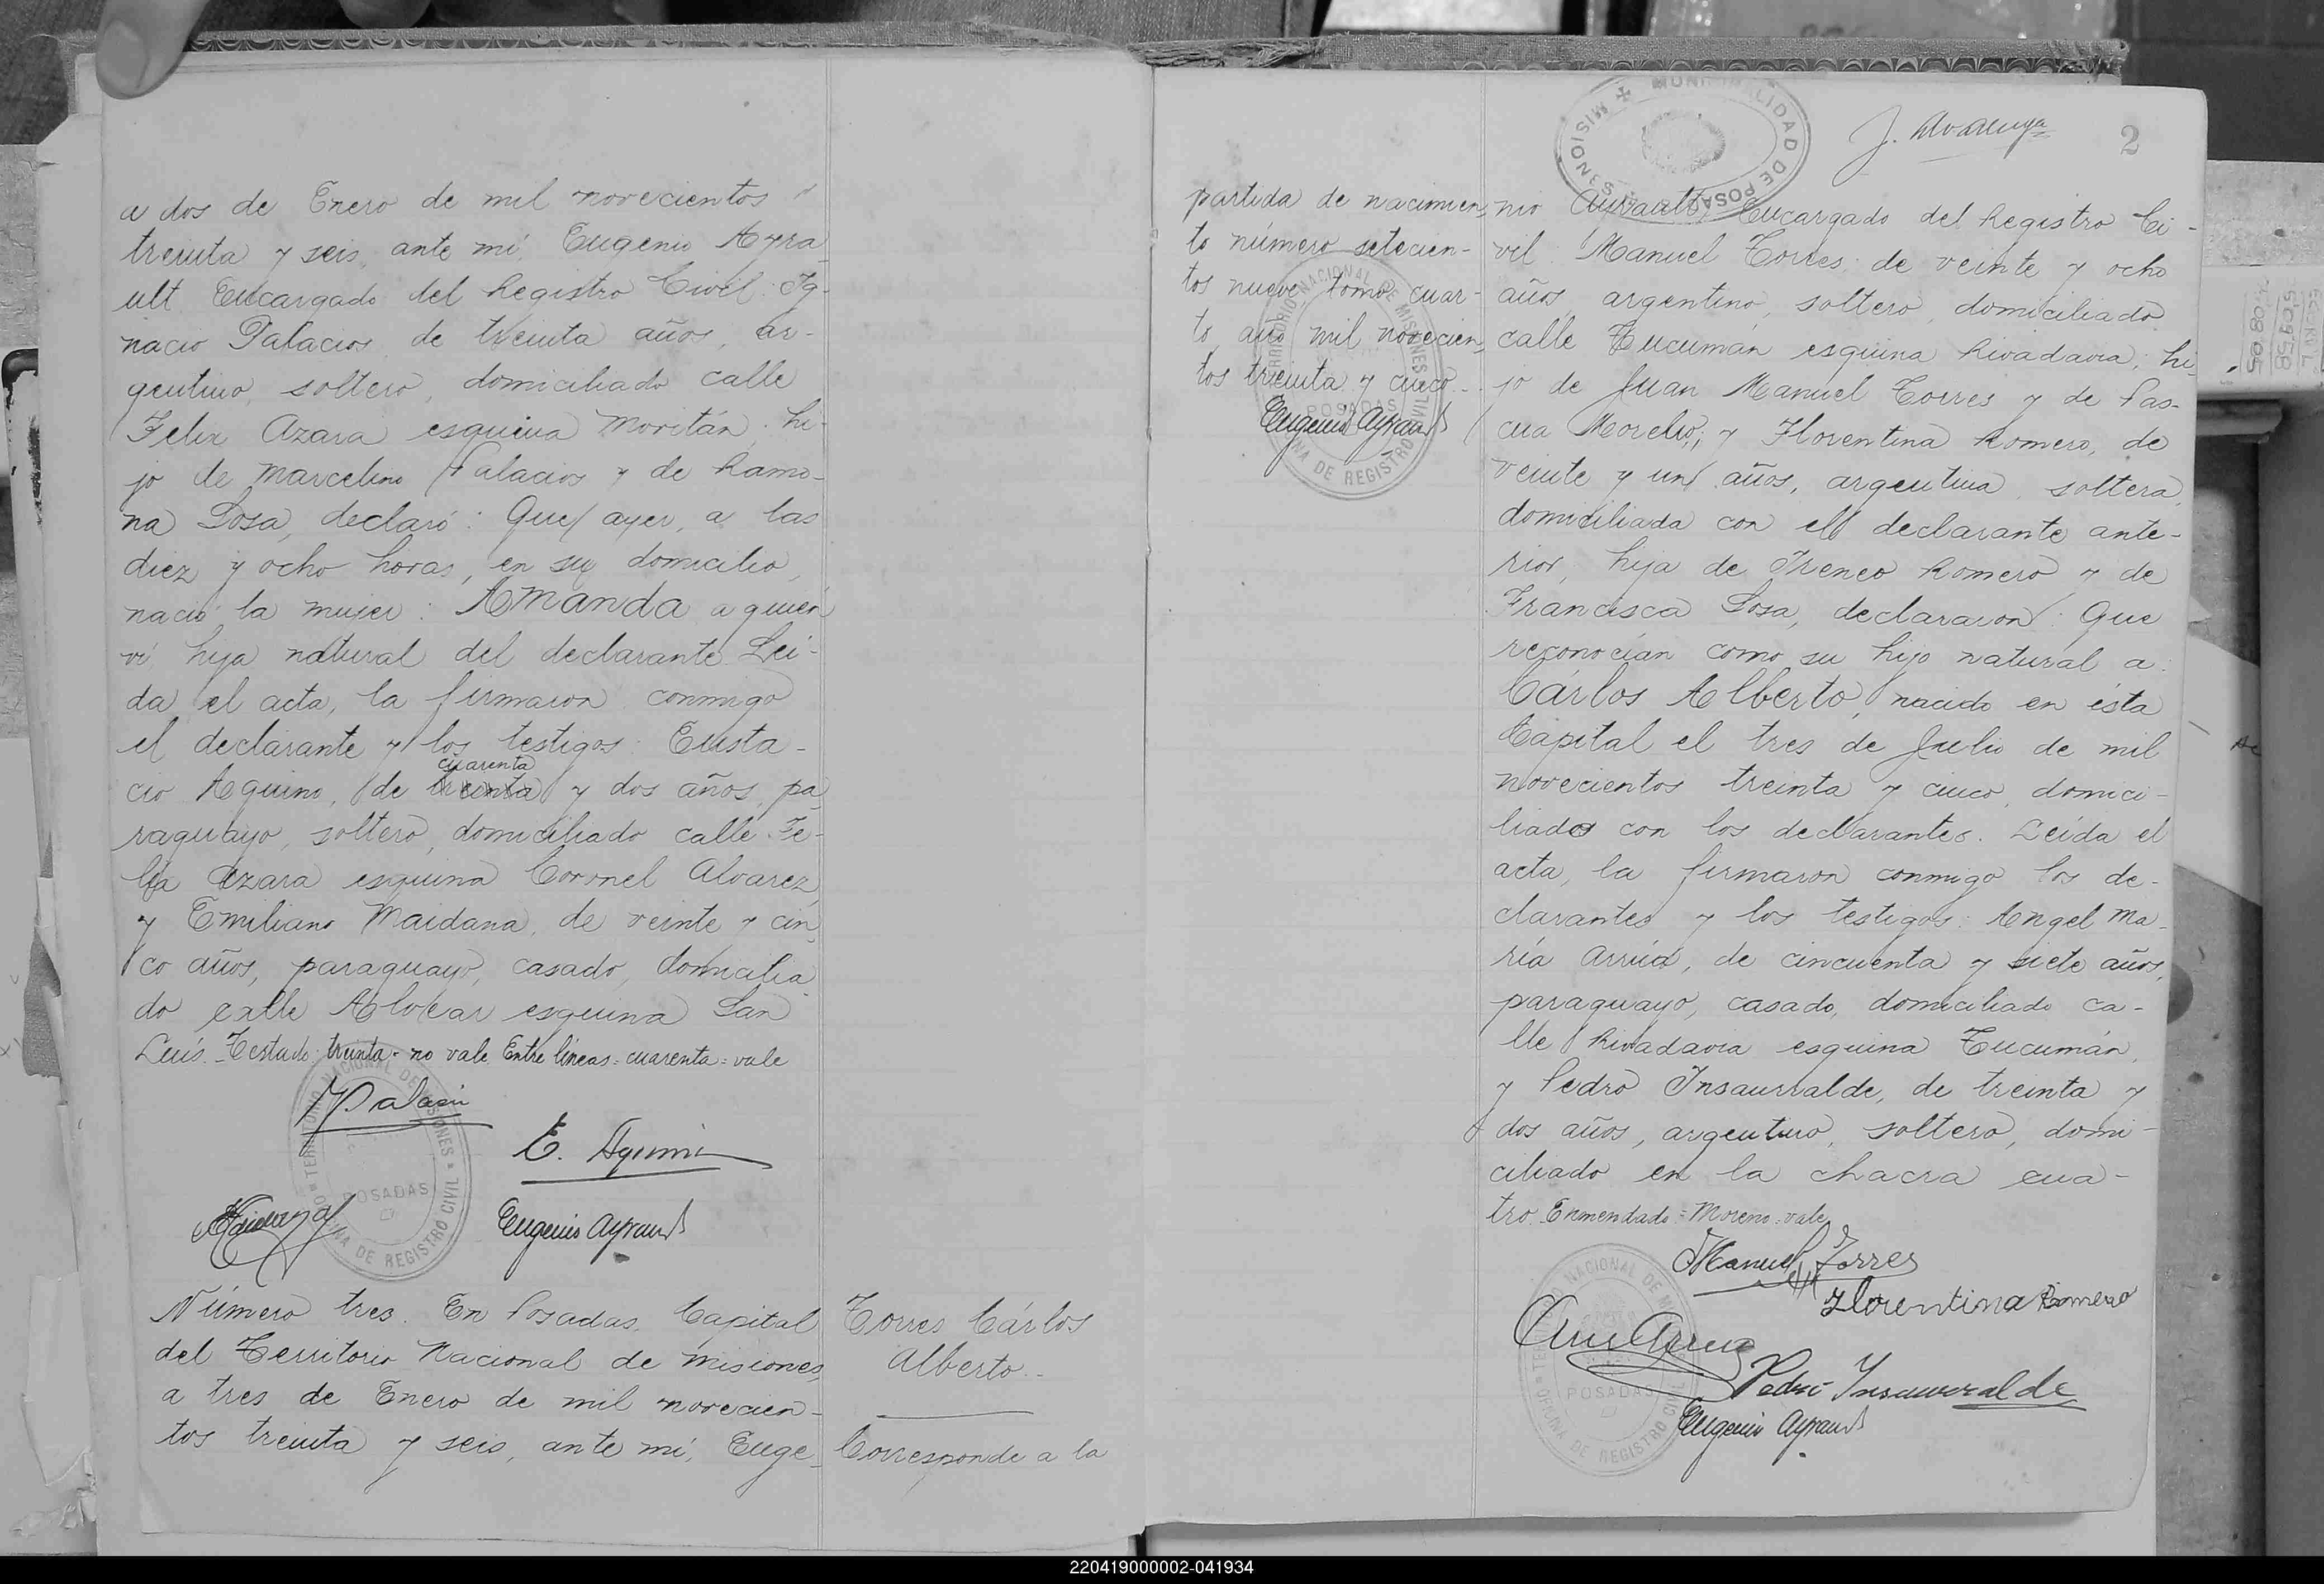 a dos de Enero de mil novecientos
treinta y seis, ante mí, Eugenio Ayra
ult Encargado del Registro Civil: Ig-
nacio Palacios, de treinta años, ar-
gentino, soltero, domiciliado calle
Felix Azara esquina Moritán, hi-
jo de Marcelino Palacios y de Ramo-
na Sosa, declaró: Que ayer, a las
diez y ocho horas, en su domicilio,
nació la mujer: Amanda a quien
ví, hija natural del declarante. Leí-
da el acta, la firmaron conmigo
el declarante y los testigos: Eusta-
cuarenta
cio Aquino, de treinta y dos años, pa
raguayo, soltero, domiciliado calle Fe-
lix Azara esquina Coronel Alvarez,
y Emiliano Maidana, de veinte y cin
co años, paraguayo, casado, domicilia
do calle Alvear esquina San
Luís. Testado: treinta - no vale. Entre líneas = cuarenta = vale
E. Aquino
Eugenio Ayrault
TERRITORIO NACIONAL DE MISIONES
POSADAS
OFICINA DE REGISTRO CIVIL
Número tres. En Posadas, Capital
del Territorio Nacional de Misiones,
a tres de Enero de mil novecien-
tos treinta y seis, ante mí, Euge-
Torres Cárlos
Alberto.
Corresponde a la
partida de nacimien
to número setecien-
tos nueve, tomo cuar-
to, año mil novecien
tos treinta y cinco.
Eugenio Ayrault
TERRITORIO NACIONAL DE MISIONES
POSADAS
OFICINA DE REGISTRO CIVIL
MUNICIPALIDAD DE POSADAS
MISIONES
2
nio Ayrault, Encargado del Registro Ci-
vil: Manuel Torres, de veinte y ocho
años, argentino, soltero, domiciliado
calle Tucumán esquina Rivadavia, hi
jo de Juan Manuel Torres y de Pas-
cua Moreno; y Florentina Romero, de
veinte y un años, argentina, soltera,
domiciliada con el declarante ante-
rior, hija de Ireneo Romero y de
Francisca Sosa, declararon: Que
reconocían como su hijo natural a:
Cárlos Alberto, nacido en ésta
Capital el tres de Julio de mil
novecientos treinta y cinco, domici-
liados con los declarantes. Leída el
acta, la firmaron conmigo los de-
clarantes y los testigos: Angel Ma-
ría Arrúa, de cincuenta y siete años,
paraguayo, casado, domiciliado ca-
lle Rivadavia esquina Tucumán,
y Pedro Insaurralde, de treinta y
dos años, argentino, soltero, domi-
ciliado en la chacra cua-
tro. Enmendado = Moreno = vale
Manuel Torres
Florentina Romero
Pedro Insaurralde
Eugenio Ayrault
TERRITORIO NACIONAL DE MISIONES
POSADAS
OFICINA DE REGISTRO CIVIL
220419000002-041934